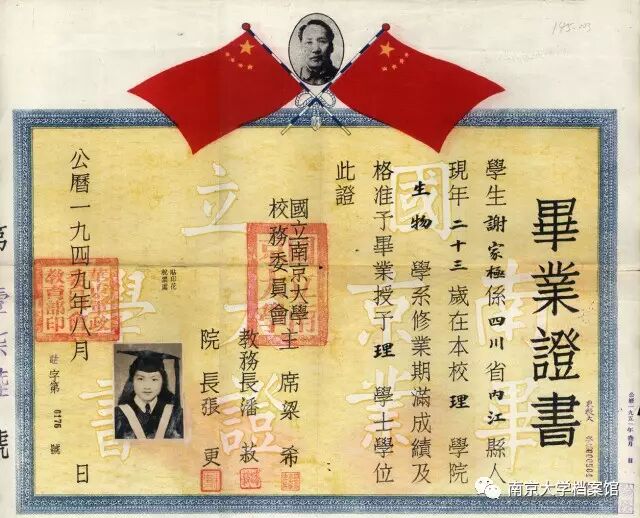 畢業證書
學生謝家極係四川省內江縣人
現年二十三歲在本校理學院
生物學系修業期滿成績及
格准予畢業授予理學士學位
此證
國立南京大學
校務委員會主席梁希
教務長潘菽
院長張更
貼印花
稅票處
公曆一九四九年八月 日
字第 0176 號
教育部印
國立南京大學畢業證書
南京大学档案馆